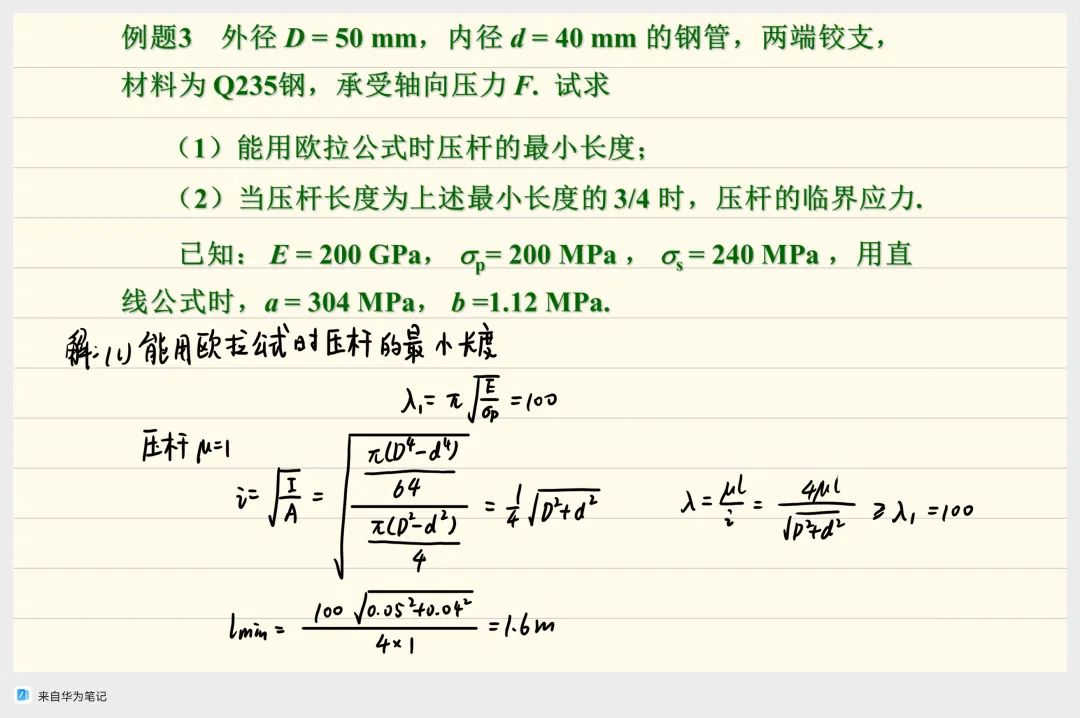 例题3 外径 D = 50 mm，内径 d = 40 mm 的钢管，两端铰支，
材料为 Q235钢，承受轴向压力 F. 试求
（1）能用欧拉公式时压杆的最小长度；
（2）当压杆长度为上述最小长度的 3/4 时，压杆的临界应力.
已知： E = 200 GPa， σp= 200 MPa ， σs = 240 MPa ，用直
线公式时，a = 304 MPa， b =1.12 MPa.
解：(1) 能用欧拉公式时压杆的最小长度
λ₁ = π√(E/σp) = 100
压杆 μ=1
i = √(I/A) = √((π(D⁴-d⁴)/64)/(π(D²-d²)/4)) = 1/4 √(D²+d²) λ = μl/i = 4μl/√(D²+d²) ≥ λ₁ = 100
lmin = 100√(0.05²+0.04²)/(4×1) = 1.6m
来自华为笔记